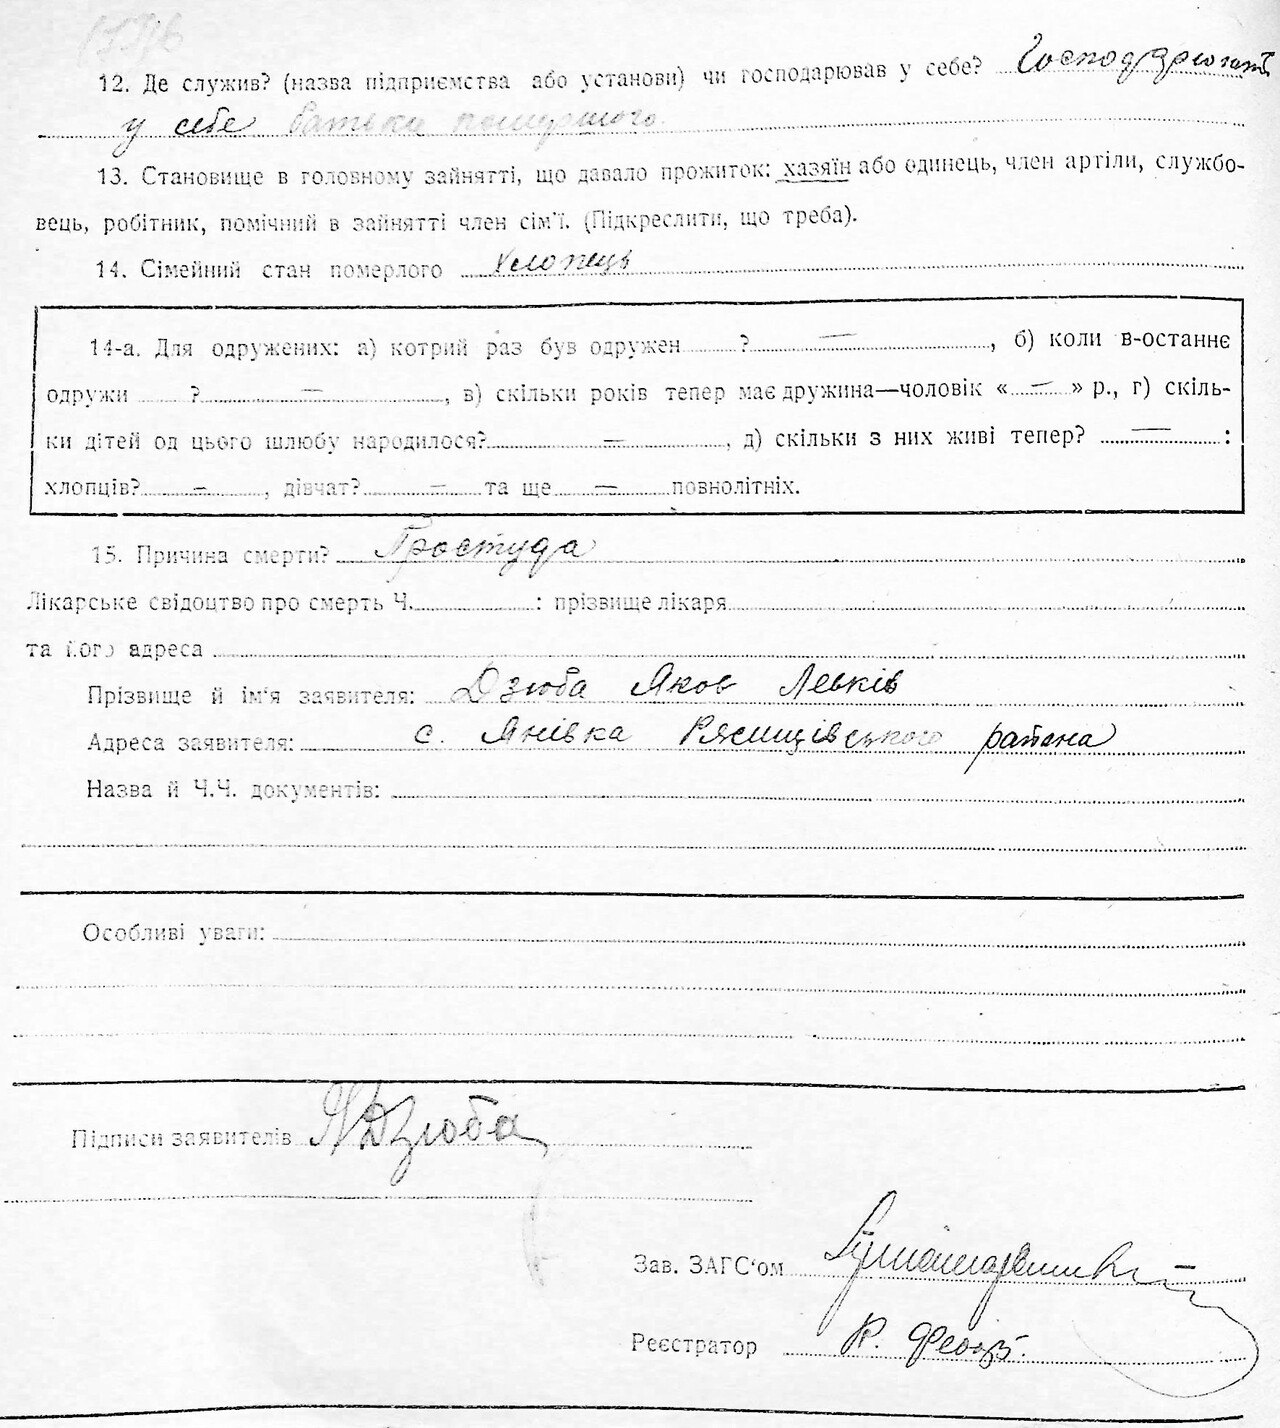 12. Де служив? (назва підприємства або установи) чи господарював у себе? Господарюють
у себе батьки помершого
13. Становище в головному зайнятті, що давало прожиток: хазяїн або одинець, член артіли, службо-
вець, робітник, помічний в зайнятті член сім'ї. (Підкреслити, що треба).
14. Сімейний стан померлого Хлопець
14-а. Для одружених: а) котрий раз був одружен ? —, б) коли в-останнє
одружи ? —, в) скільки років тепер має дружина—чоловік « — » р., г) скіль-
ки дітей од цього шлюбу народилося? —, д) скільки з них живі тепер? — :
хлопців? —, дівчат? — та ще — повнолітніх.
15. Причина смерти? Простуда
Лікарське свідоцтво про смерть Ч. : прізвище лікаря
та його адреса
Прізвище й ім'я заявителя: Дзюба Яков Левків
Адреса заявителя: с. Янівка Ржищівського района
Назва й Ч.Ч. документів:
Особливі уваги:
Підписи заявителів ЯДзюба
Зав. ЗАГС'ом
Реєстратор